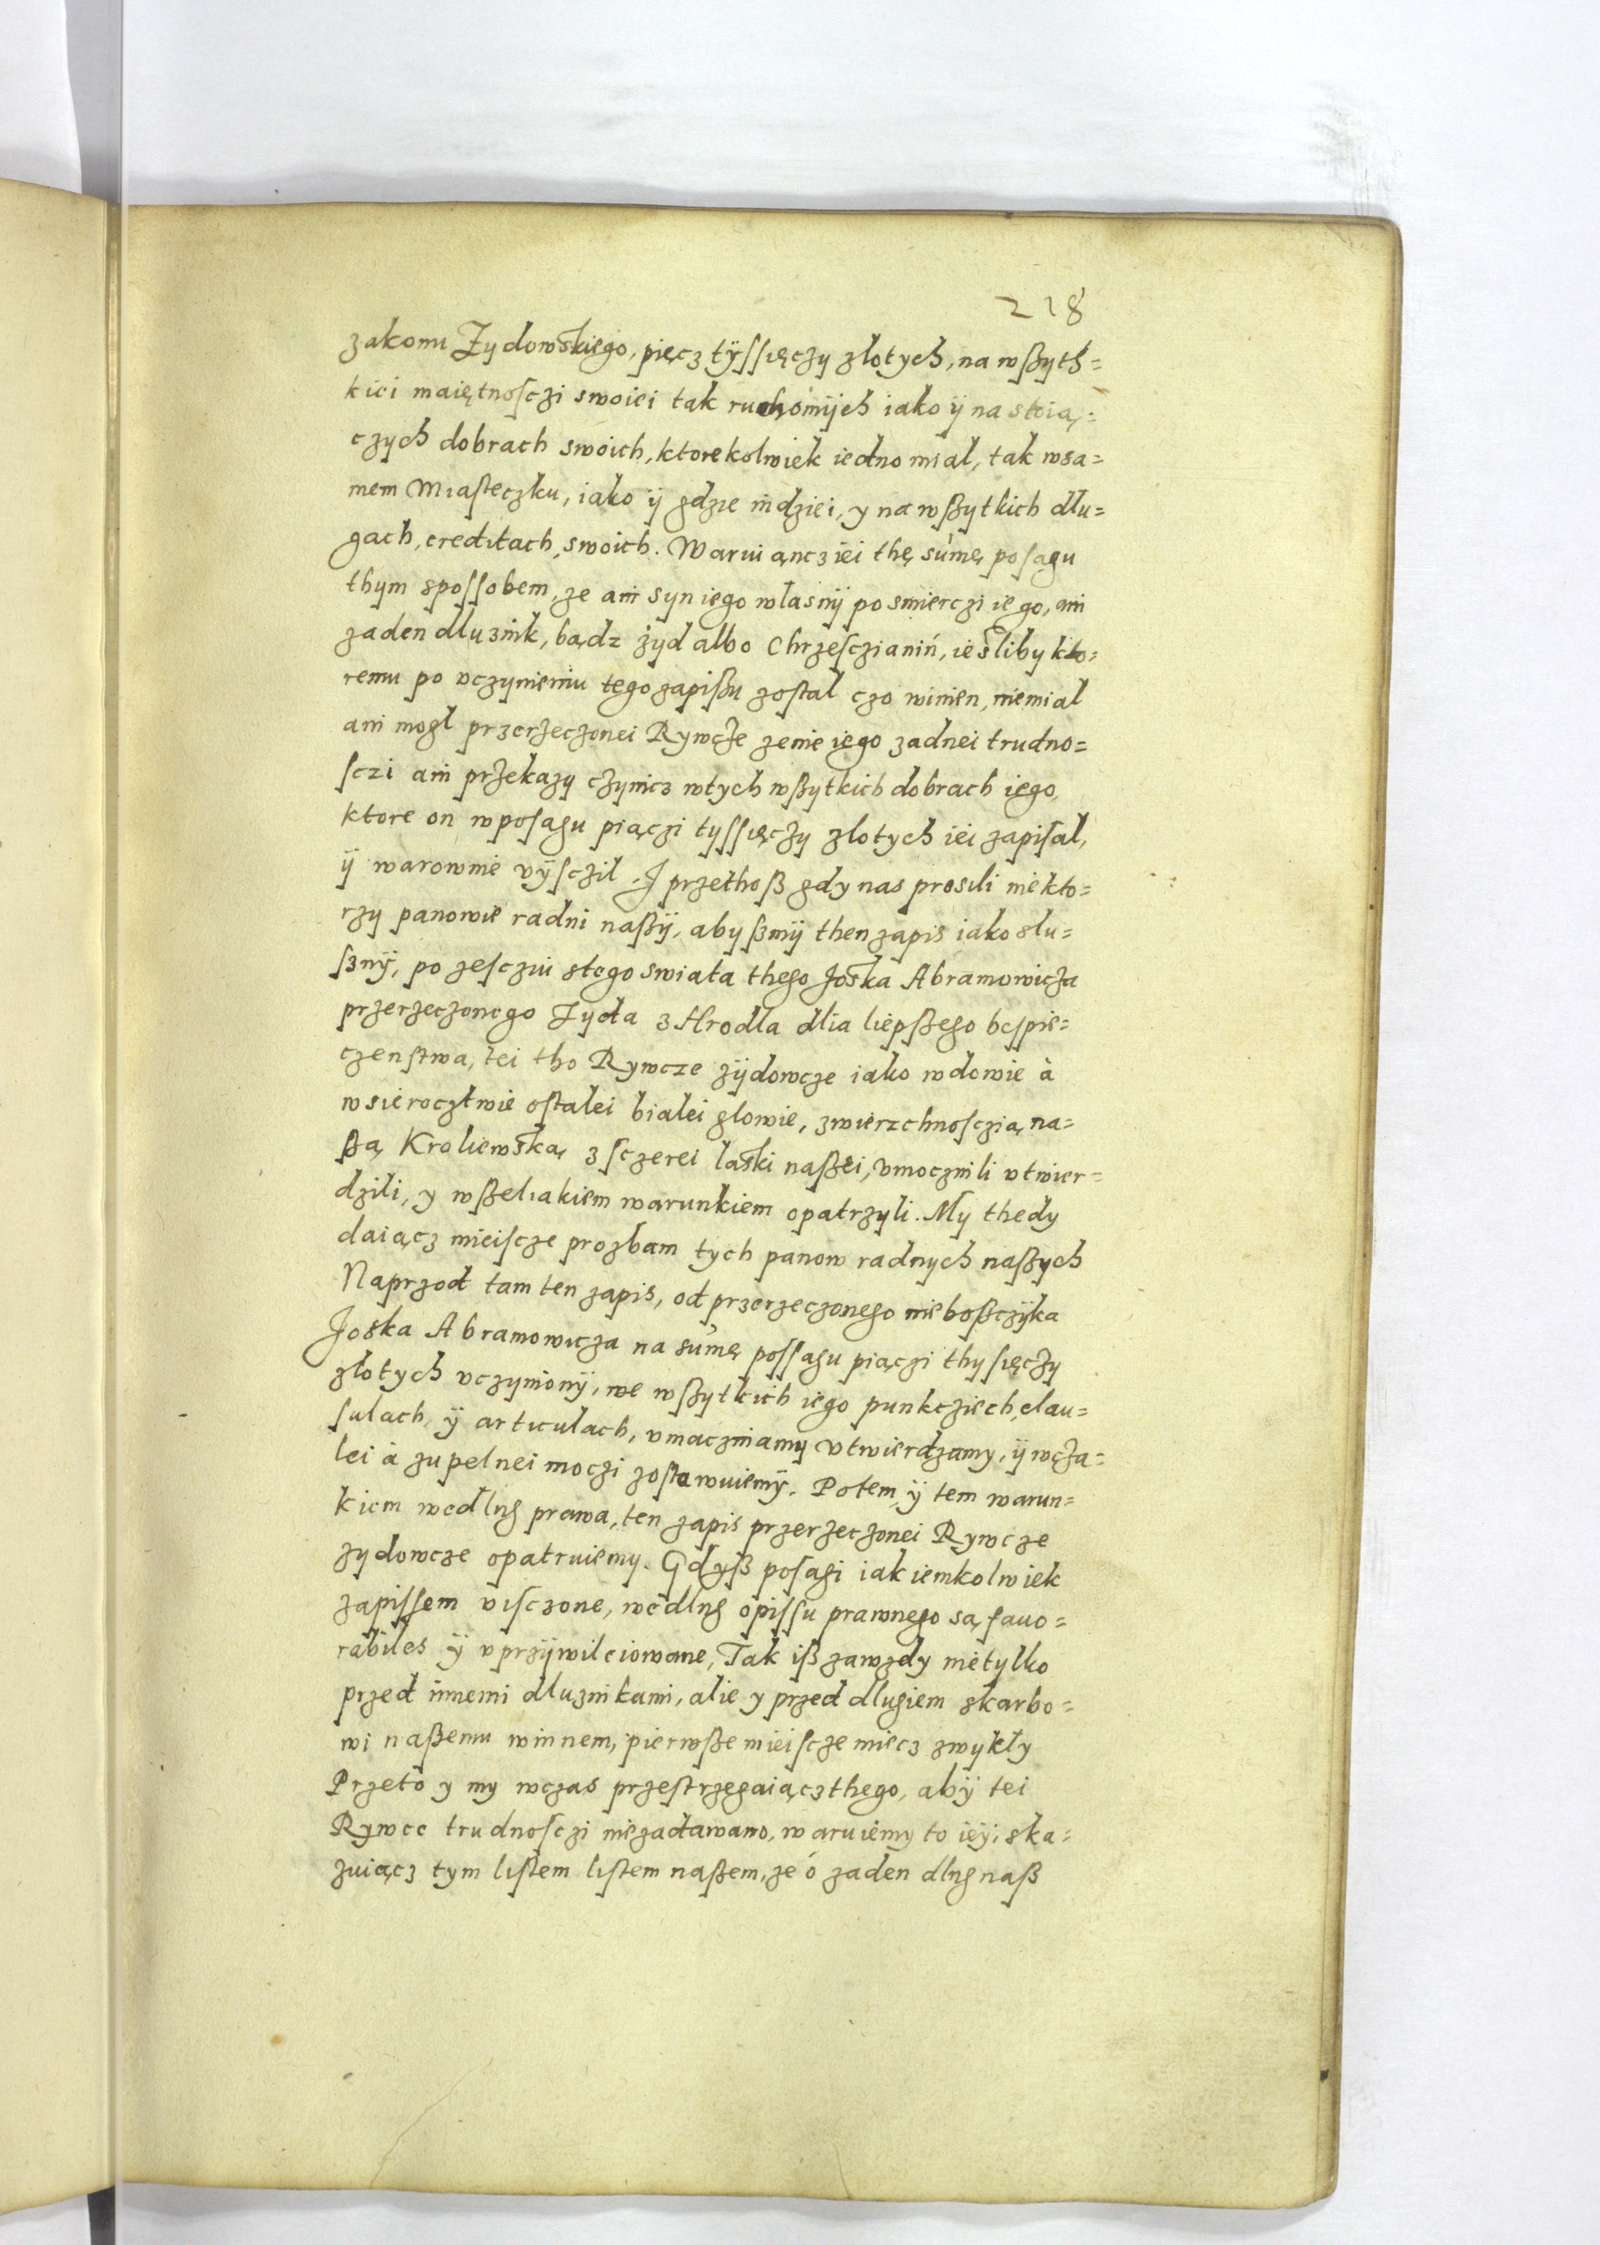 218
zakonu Żydowskiego, pięcz tÿssięczy złotych, na wßyth=
kiei maiętnosczi swoiei tak ruchomÿch iako ÿ na stoią=
czych dobrach swoich, ktorekolwiek iedno mial, tak w sa=
mem Miasteczku, iako ÿ gdzie indziei, y na wßytkich dłu=
gach, creditach, swoich. Waruiąncz iei thę sumę posagu
thym spossobem, ze ani syn iego własnÿ po smierczi iego, ani
zaden dluznik, bądz żyd albo Chrzesczianiń, iesliby kto=
remu po vczynieniu tego zapißu zostal czo winien, niemial
ani mogl przerzeczonei Rywcze zenie iego zadnei trudno=
sczi ani przekazy czynicz w tych wßytkich dobrach iego,
ktore on w posagu piączi tyssięczy zlotych iei zapisal,
ÿ warownie vÿsczil. I przethoß gdy nas prosili niekto=
rzy panowie radni naßÿ, abyßmÿ then zapis iako slu=
ßnÿ, po zesczui stego swiata thego Joska Abramowicza
przerzeczonego Zyda z Hrodla dlia liepßego bespie=
czenstwa, tei tho Rywcze zÿdowcze iako wdowie à
w sierocztwie ostalei bialei glowie, zwierzchnosczią na=
ßą Kroliewską z sczerei laski naßei, vmocznili vtwier=
dzili, y wßeliakiem warunkiem opatrzyli. My thedy
daiącz mieiscze prozbam tych panow radnych naßych
Naprzod tam ten zapis, od przerzeczonego nieboßczÿka
Joska Abramowicza na sumę possagu piączi thysięczy
zlotych vczynionÿ, we wßytkich iego punkcziech, clau=
sulach, ÿ articulach, vmaczniamy vtwierdzamy, ÿ wcza=
lei à zupelnei moczi zostawuiemÿ. Potem, ÿ tem warun=
kiem wedlug prawa, ten zapis przerzeczonei Rywcze
zydowcze opatruiemy. Gdyß posagi iakiemkolwiek
zapissem visczone, wedlug opissu prawnego są fauo=
rabiles ÿ vprzÿwileiowane, Tak iß zawzdy nietylko
przed innemi dluznikami, alie y przed dlugiem skarbo=
wi naßemu winnem, pierwße mieiscze miecz zwykly
Przeto y my wczas przestrzegaiącz thego, abÿ tei
Rywce trudnosczi niezadawano, waruiemy to ieÿ, ska=
zuiącz tym listem listem naßem, ze ó zaden dlug naß